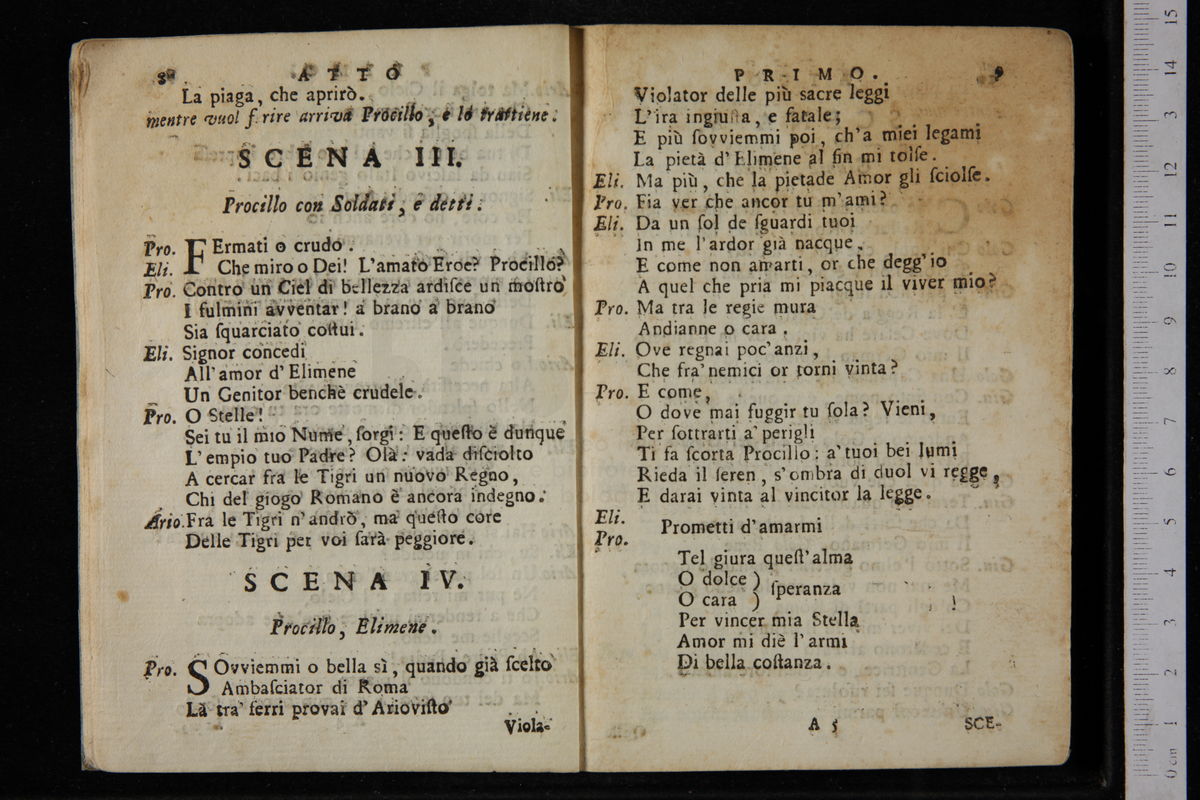 8 ATTO
La piaga, che aprirò.
mentre vuol f rire arriva Procillo, e lo trattiene.
SCENA III.
Procillo con Soldati, e detti.
Pro. FErmati o crudo.
Eli. Che miro o Dei! L'amato Eroe? Procillo?
Pro. Contro un Ciel di bellezza ardiſce un moſtro
I fulmini avventar! a brano a brano
Sia ſquarciato coſtui.
Eli. Signor concedi
All'amor d'Elimene
Un Genitor benchè crudele.
Pro. O Stelle!
Sei tu il mio Nume, ſorgi: E queſto è dunque
L'empio tuo Padre? Olà: vada diſciolto
A cercar fra le Tigri un nuovo Regno,
Chi del giogo Romano è ancora indegno.
Ario. Fra le Tigri n'andrò, ma queſto core
Delle Tigri per voi ſarà peggiore.
SCENA IV.
Procillo, Elimene.
Pro. SOvviemmi o bella sì, quando già ſcelto
Ambaſciator di Roma
Là tra' ferri provai d'Arioviſto
Viola-
PRIMO. 9
Violator delle più sacre leggi
L'ira ingiuſta, e fatale;
E più ſovviemmi poi, ch'a miei legami
La pietà d'Elimene al fin mi tolſe.
Eli. Ma più, che la pietade Amor gli ſciolſe.
Pro. Fia ver che ancor tu m'ami?
Eli. Da un ſol de ſguardi tuoi
In me l'ardor già nacque.
E come non amarti, or che degg'io
A quel che pria mi piacque il viver mio?
Pro. Ma tra le regie mura
Andianne o cara.
Eli. Ove regnai poc'anzi,
Che fra' nemici or torni vinta?
Pro. E come,
O dove mai fuggir tu ſola? Vieni,
Per ſottrarti a' perigli
Ti fa ſcorta Procillo: a' tuoi bei lumi
Rieda il ſeren, s'ombra di duol vi regge,
E darai vinta al vincitor la legge.
Eli.
Pro. Prometti d'amarmi
Tel giura queſt'alma
O dolce )
O cara ) ſperanza
Per vincer mia Stella
Amor mi diè l'armi
Di bella coſtanza.
A 5 SCE-
0 cm 1 2 3 4 5 6 7 8 9 10 11 12 13 14 15